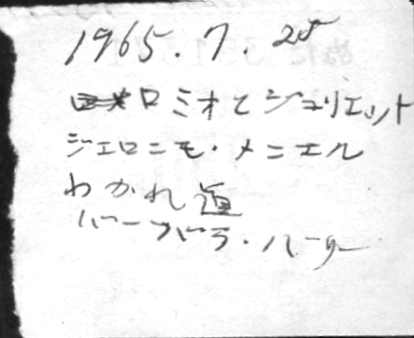 1965.7.25
ロミオとジュリエット
ジェローニモ・メニエル
わかれ道
バーバラ・ルーナ